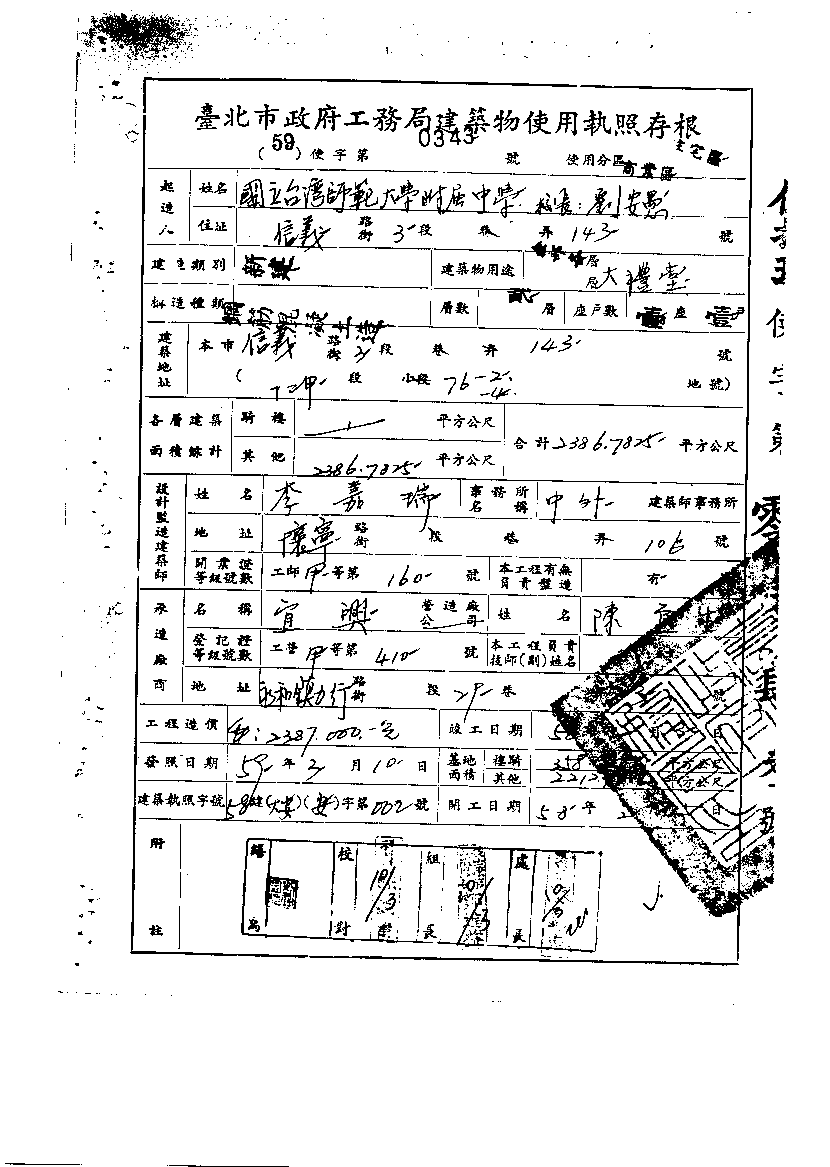 臺北市政府工務局建築物使用執照存根
(59)使字第0343號 使用分區 住宅區 商業區
起造人 姓名 國立台灣師範大學附屬中學 校長:劉安愚
住址 信義路街3段 巷 弄143號
建造類別 新建 建築物用途 層 層大禮堂
構造種類 鋼筋混凝土造 層數 貳層 座戶數 壹座壹戶
建築地址 本市信義路街3段 巷 弄143號
( 段 小段76-2-4地號)
各層建築面積總計 騎樓 平方公尺 合計2386.7825平方公尺
其他 2386.7825平方公尺
設計監造建築師 姓名 李嘉瑞 事務所名稱 中外建築師事務所
地址 懷寧路街 段 巷 弄106號
開業證等級號數 工師甲等第160號 本工程有無負責監造 有
承造廠商 名稱 宜興營造廠公司 姓名 陳
登記證等級號數 工營甲等第410號 本工程負責技師(副)姓名
地址 永和鎮力行路街 段29巷 號
工程造價 2387.000.-元 竣工日期 58 月 日
發照日期 59年3月10日 基地面積 樓騎 358 平方公尺
其他 2212 平方公尺
建築執照字號 58建(大安)(安)字第002號 開工日期 58年 日
附註
繕寫 校對 10/3 組長 10/3 處長